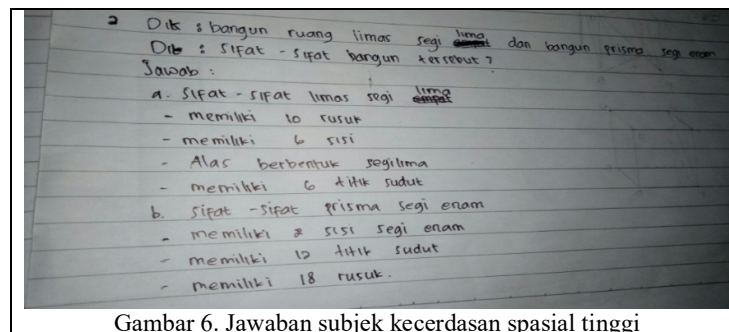 2 Dik : bangun ruang limas segi lima dan bangun prisma segi enam
Dit : sifat - sifat bangun tersebut ?
Jawab :
a. sifat - sifat limas segi lima
- memiliki 10 rusuk
- memiliki 6 sisi
- Alas berbentuk segilima
- memiliki 6 titik sudut
b. sifat - sifat prisma segi enam
- memiliki 8 sisi segi enam
- memiliki 12 titik sudut
- memiliki 18 rusuk.
Gambar 6. Jawaban subjek kecerdasan spasial tinggi